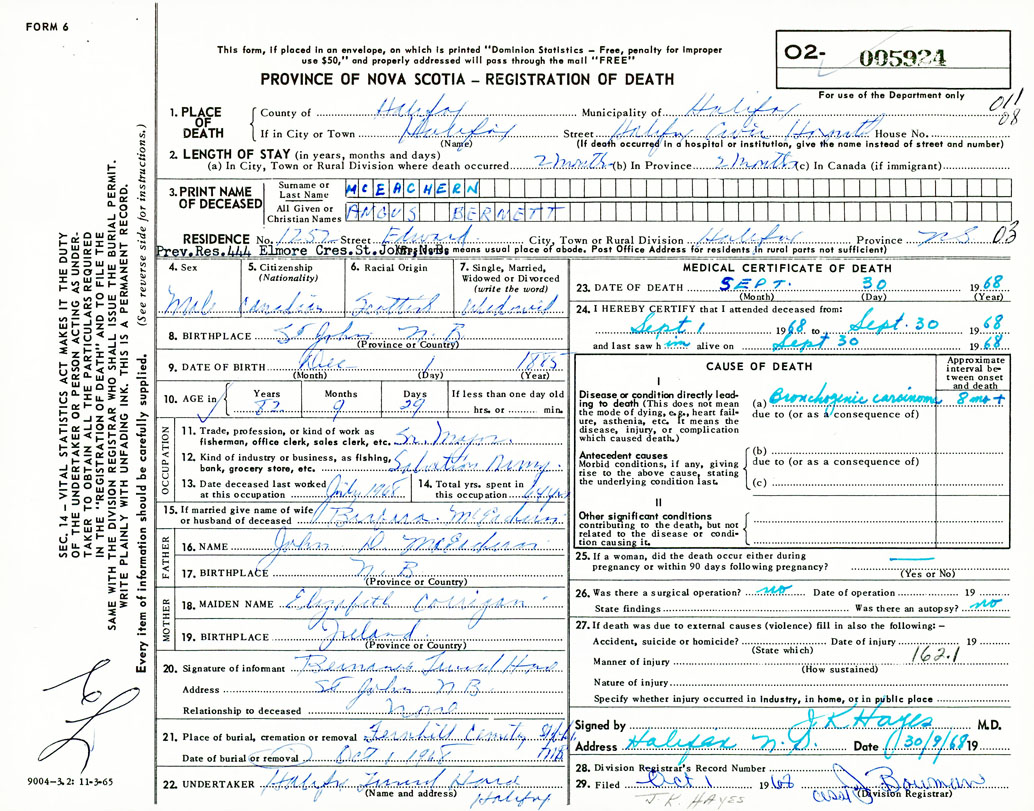 FORM 6
This form, if placed in an envelope, on which is printed "Dominion Statistics — Free, penalty for improper
use $50," and properly addressed will pass through the mail "FREE"
PROVINCE OF NOVA SCOTIA — REGISTRATION OF DEATH
O2- 005924
For use of the Department only
011
08
1. PLACE OF DEATH
County of Halifax Municipality of Halifax
If in City or Town Halifax Street Halifax Civic House No.
(Name) (If death occurred in a hospital or institution, give the name instead of street and number)
2. LENGTH OF STAY (in years, months and days)
(a) In City, Town or Rural Division where death occurred 2 months (b) In Province 2 months (c) In Canada (if immigrant)
3. PRINT NAME OF DECEASED
Surname or Last Name MCEACHERN
All Given or Christian Names ANGUS BERNETT
RESIDENCE No. 1252 Street Edward City, Town or Rural Division Halifax Province NS 03
Prev.Res.444 Elmore Cres.St.John, N.B. means usual place of abode. Post Office Address for residents in rural parts not sufficient)
4. Sex
Male
5. Citizenship (Nationality)
Canadian
6. Racial Origin
Scottish
7. Single, Married, Widowed or Divorced (write the word)
Widowed
8. BIRTHPLACE St John N.B
(Province or Country)
9. DATE OF BIRTH Dec 1 1885
(Month) (Day) (Year)
10. AGE in Years Months Days If less than one day old
82 9 29 hrs. or min.
OCCUPATION
11. Trade, profession, or kind of work as fisherman, office clerk, sales clerk, etc. Sr. Major
12. Kind of industry or business, as fishing, bank, grocery store, etc. Salvation Army
13. Date deceased last worked at this occupation July 1968
14. Total yrs. spent in this occupation
15. If married give name of wife or husband of deceased Barbara McEachern
FATHER
16. NAME John D. McEachern
17. BIRTHPLACE N.B
(Province or Country)
MOTHER
18. MAIDEN NAME Elizabeth Corrigan
19. BIRTHPLACE Ireland
(Province or Country)
20. Signature of informant Funeral Home
Address St John N B
Relationship to deceased None
21. Place of burial, cremation or removal Fernhill St John N.B.
Date of burial or removal Oct 1 1968
22. UNDERTAKER Halifax Funeral Home
(Name and address) Halifax
MEDICAL CERTIFICATE OF DEATH
23. DATE OF DEATH SEPT. 30 1968
(Month) (Day) (Year)
24. I HEREBY CERTIFY that I attended deceased from:
Sept 1 1968 to Sept. 30 1968
and last saw him alive on Sept 30 1968
CAUSE OF DEATH
Approximate interval between onset and death
I
Disease or condition directly leading to death (This does not mean the mode of dying, e.g., heart failure, asthenia, etc. It means the disease, injury, or complication which caused death.)
(a) Bronchogenic carcinoma 8 mo +
due to (or as a consequence of)
Antecedent causes
Morbid conditions, if any, giving rise to the above cause, stating the underlying condition last.
(b)
due to (or as a consequence of)
(c)
II
Other significant conditions
contributing to the death, but not related to the disease or condition causing it.
25. If a woman, did the death occur either during pregnancy or within 90 days following pregnancy?
(Yes or No)
26. Was there a surgical operation? no Date of operation 19
State findings Was there an autopsy? no
27. If death was due to external causes (violence) fill in also the following: —
Accident, suicide or homicide? Date of injury 19
(State which)
162.1
Manner of injury
(How sustained)
Nature of injury
Specify whether injury occurred in Industry, in home, or in public place
Signed by J.K. Hayes M.D.
Address Halifax N.S. Date 30/9/68 19
28. Division Registrar's Record Number
29. Filed Oct 1 1968 J Bowman
(Division Registrar)
J.K. HAYES
SEC. 14 — VITAL STATISTICS ACT MAKES IT THE DUTY
OF THE UNDERTAKER OR PERSON ACTING AS UNDER-
TAKER TO OBTAIN ALL THE PARTICULARS REQUIRED
IN THE "REGISTRATION OF DEATH" AND TO FILE THE
SAME WITH THE DIVISION REGISTRAR WHO SHALL ISSUE THE BURIAL PERMIT.
WRITE PLAINLY WITH UNFADING INK. THIS IS A PERMANENT RECORD.
Every item of information should be carefully supplied. (See reverse side for instructions.)
9004-3.2: 11-3-65